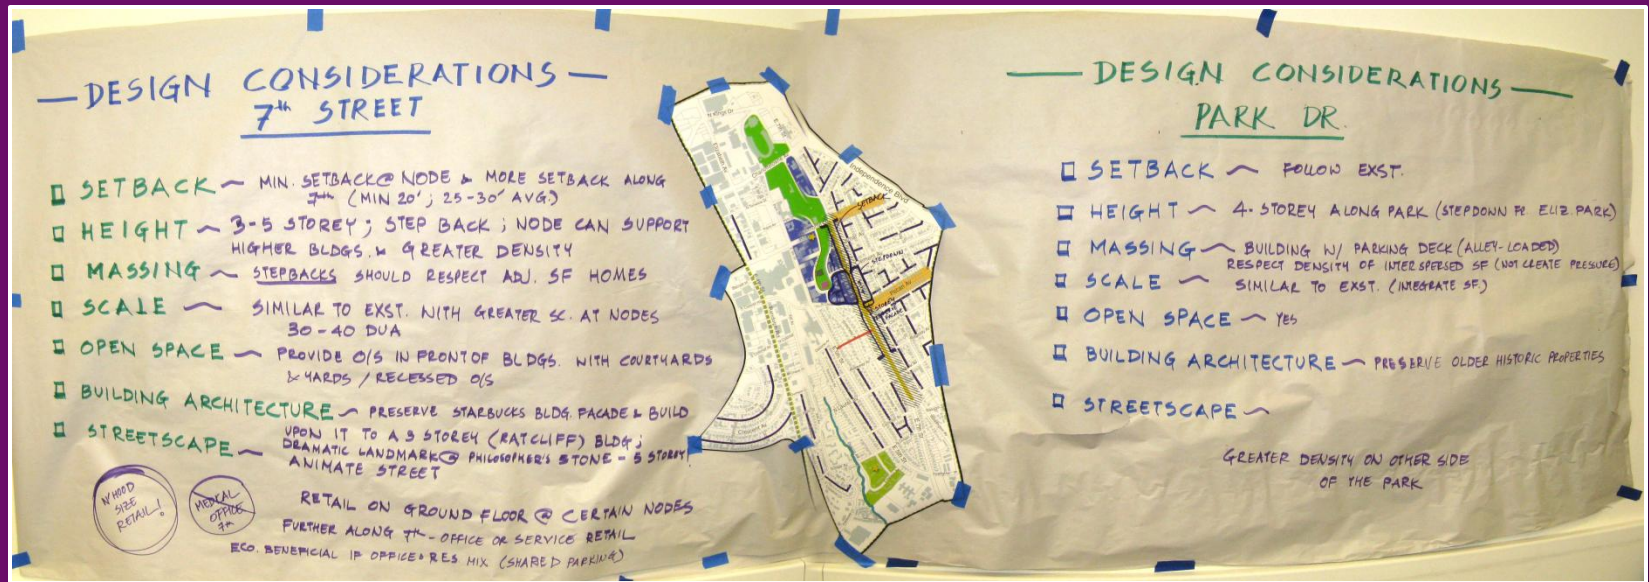 — DESIGN CONSIDERATIONS —
7th STREET
SETBACK ~ MIN. SETBACK @ NODE & MORE SETBACK ALONG
7th (MIN 20'; 25-30' AVG.)
HEIGHT ~ 3-5 STOREY; STEP BACK; NODE CAN SUPPORT
HIGHER BLDGS. & GREATER DENSITY
MASSING ~ STEPBACKS SHOULD RESPECT ADJ. SF HOMES
SCALE ~ SIMILAR TO EXST. WITH GREATER SC. AT NODES
30-40 DUA
OPEN SPACE ~ PROVIDE O/S IN FRONT OF BLDGS. WITH COURTYARDS
& YARDS / RECESSED O/S
BUILDING ARCHITECTURE ~ PRESERVE STARBUCKS BLDG. FACADE & BUILD
UPON IT TO A 3 STOREY (RATCLIFF) BLDG;
STREETSCAPE ~ DRAMATIC LANDMARK @ PHILOSOPHER'S STONE - 5 STOREY
ANIMATE STREET
N'HOOD
SIZE
RETAIL!
MEDICAL
OFFICE
7th
RETAIL ON GROUND FLOOR @ CERTAIN NODES
FURTHER ALONG 7th - OFFICE OR SERVICE RETAIL
ECO. BENEFICIAL IF OFFICE & RES MIX (SHARED PARKING)
N Kings Dr
Independence Blvd
SETBACK
STEPDOWN
Pecan Av
— DESIGN CONSIDERATIONS —
PARK DR.
SETBACK ~ FOLLOW EXST.
HEIGHT ~ 4. STOREY ALONG PARK (STEPDOWN Fr ELIZ. PARK)
MASSING ~ BUILDING W/ PARKING DECK (ALLEY-LOADED)
RESPECT DENSITY OF INTERSPERSED SF (NOT CREATE PRESSURE)
SCALE ~ SIMILAR TO EXST. (INTEGRATE SF.)
OPEN SPACE ~ YES
BUILDING ARCHITECTURE ~ PRESERVE OLDER HISTORIC PROPERTIES
STREETSCAPE ~
GREATER DENSITY ON OTHER SIDE
OF THE PARK